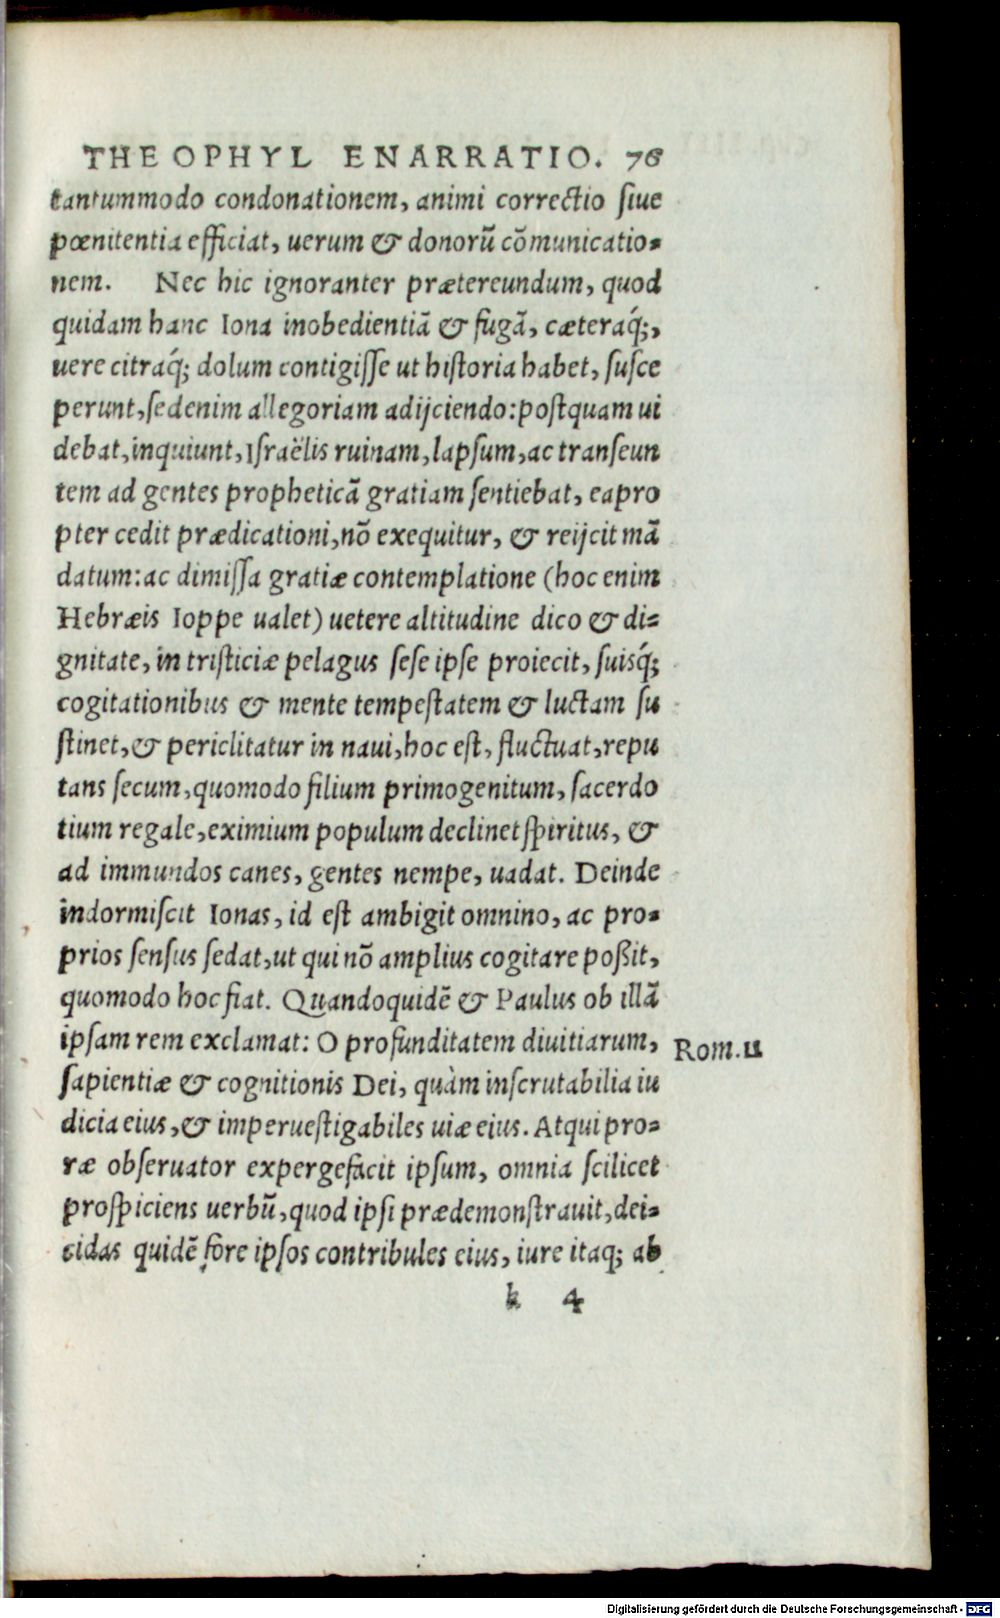 THEOPHYL ENARRATIO. 76
tantummodo condonationem, animi correctio ſiue
pœnitentia efficiat, uerum & donorū cōmunicatio-
nem. Nec hic ignoranter prætereundum, quod
quidam hanc Iona inobedientiā & fugā, cæteraq́;,
uere citraq́; dolum contigiſſe ut hiſtoria habet, ſuſce
perunt, ſed enim allegoriam adijciendo: poſtquam ui
debat, inquiunt, Iſraëlis ruinam, lapſum, ac tranſeun
tem ad gentes propheticā gratiam ſentiebat, eapro
pter cedit prædicationi, nō exequitur, & reijcit mā
datum: ac dimiſſa gratiæ contemplatione (hoc enim
Hebræis Ioppe ualet) uetere altitudine dico & di-
gnitate, in triſticiæ pelagus ſeſe ipſe proiecit, ſuisq́;
cogitationibus & mente tempeſtatem & luctam ſu
ſtinet, & periclitatur in naui, hoc eſt, fluctuat, repu
tans ſecum, quomodo filium primogenitum, ſacerdo
tium regale, eximium populum declinet ſpiritus, &
ad immundos canes, gentes nempe, uadat. Deinde
indormiſcit Ionas, id eſt ambigit omnino, ac pro-
prios ſenſus ſedat, ut qui nō amplius cogitare poßit,
quomodo hoc fiat. Quandoquidē & Paulus ob illā
ipſam rem exclamat: O profunditatem diuitiarum,
Rom. 11
ſapientiæ & cognitionis Dei, quàm inſcrutabilia iu
dicia eius, & imperueſtigabiles uiæ eius. Atqui pro-
ræ obſeruator expergefacit ipſum, omnia ſcilicet
proſpiciens uerbū, quod ipſi prædemonſtrauit, dei-
cidas quidē fore ipſos contribules eius, iure itaq; ab
k 4
Digitalisierung gefördert durch die Deutsche Forschungsgemeinschaft - DFG